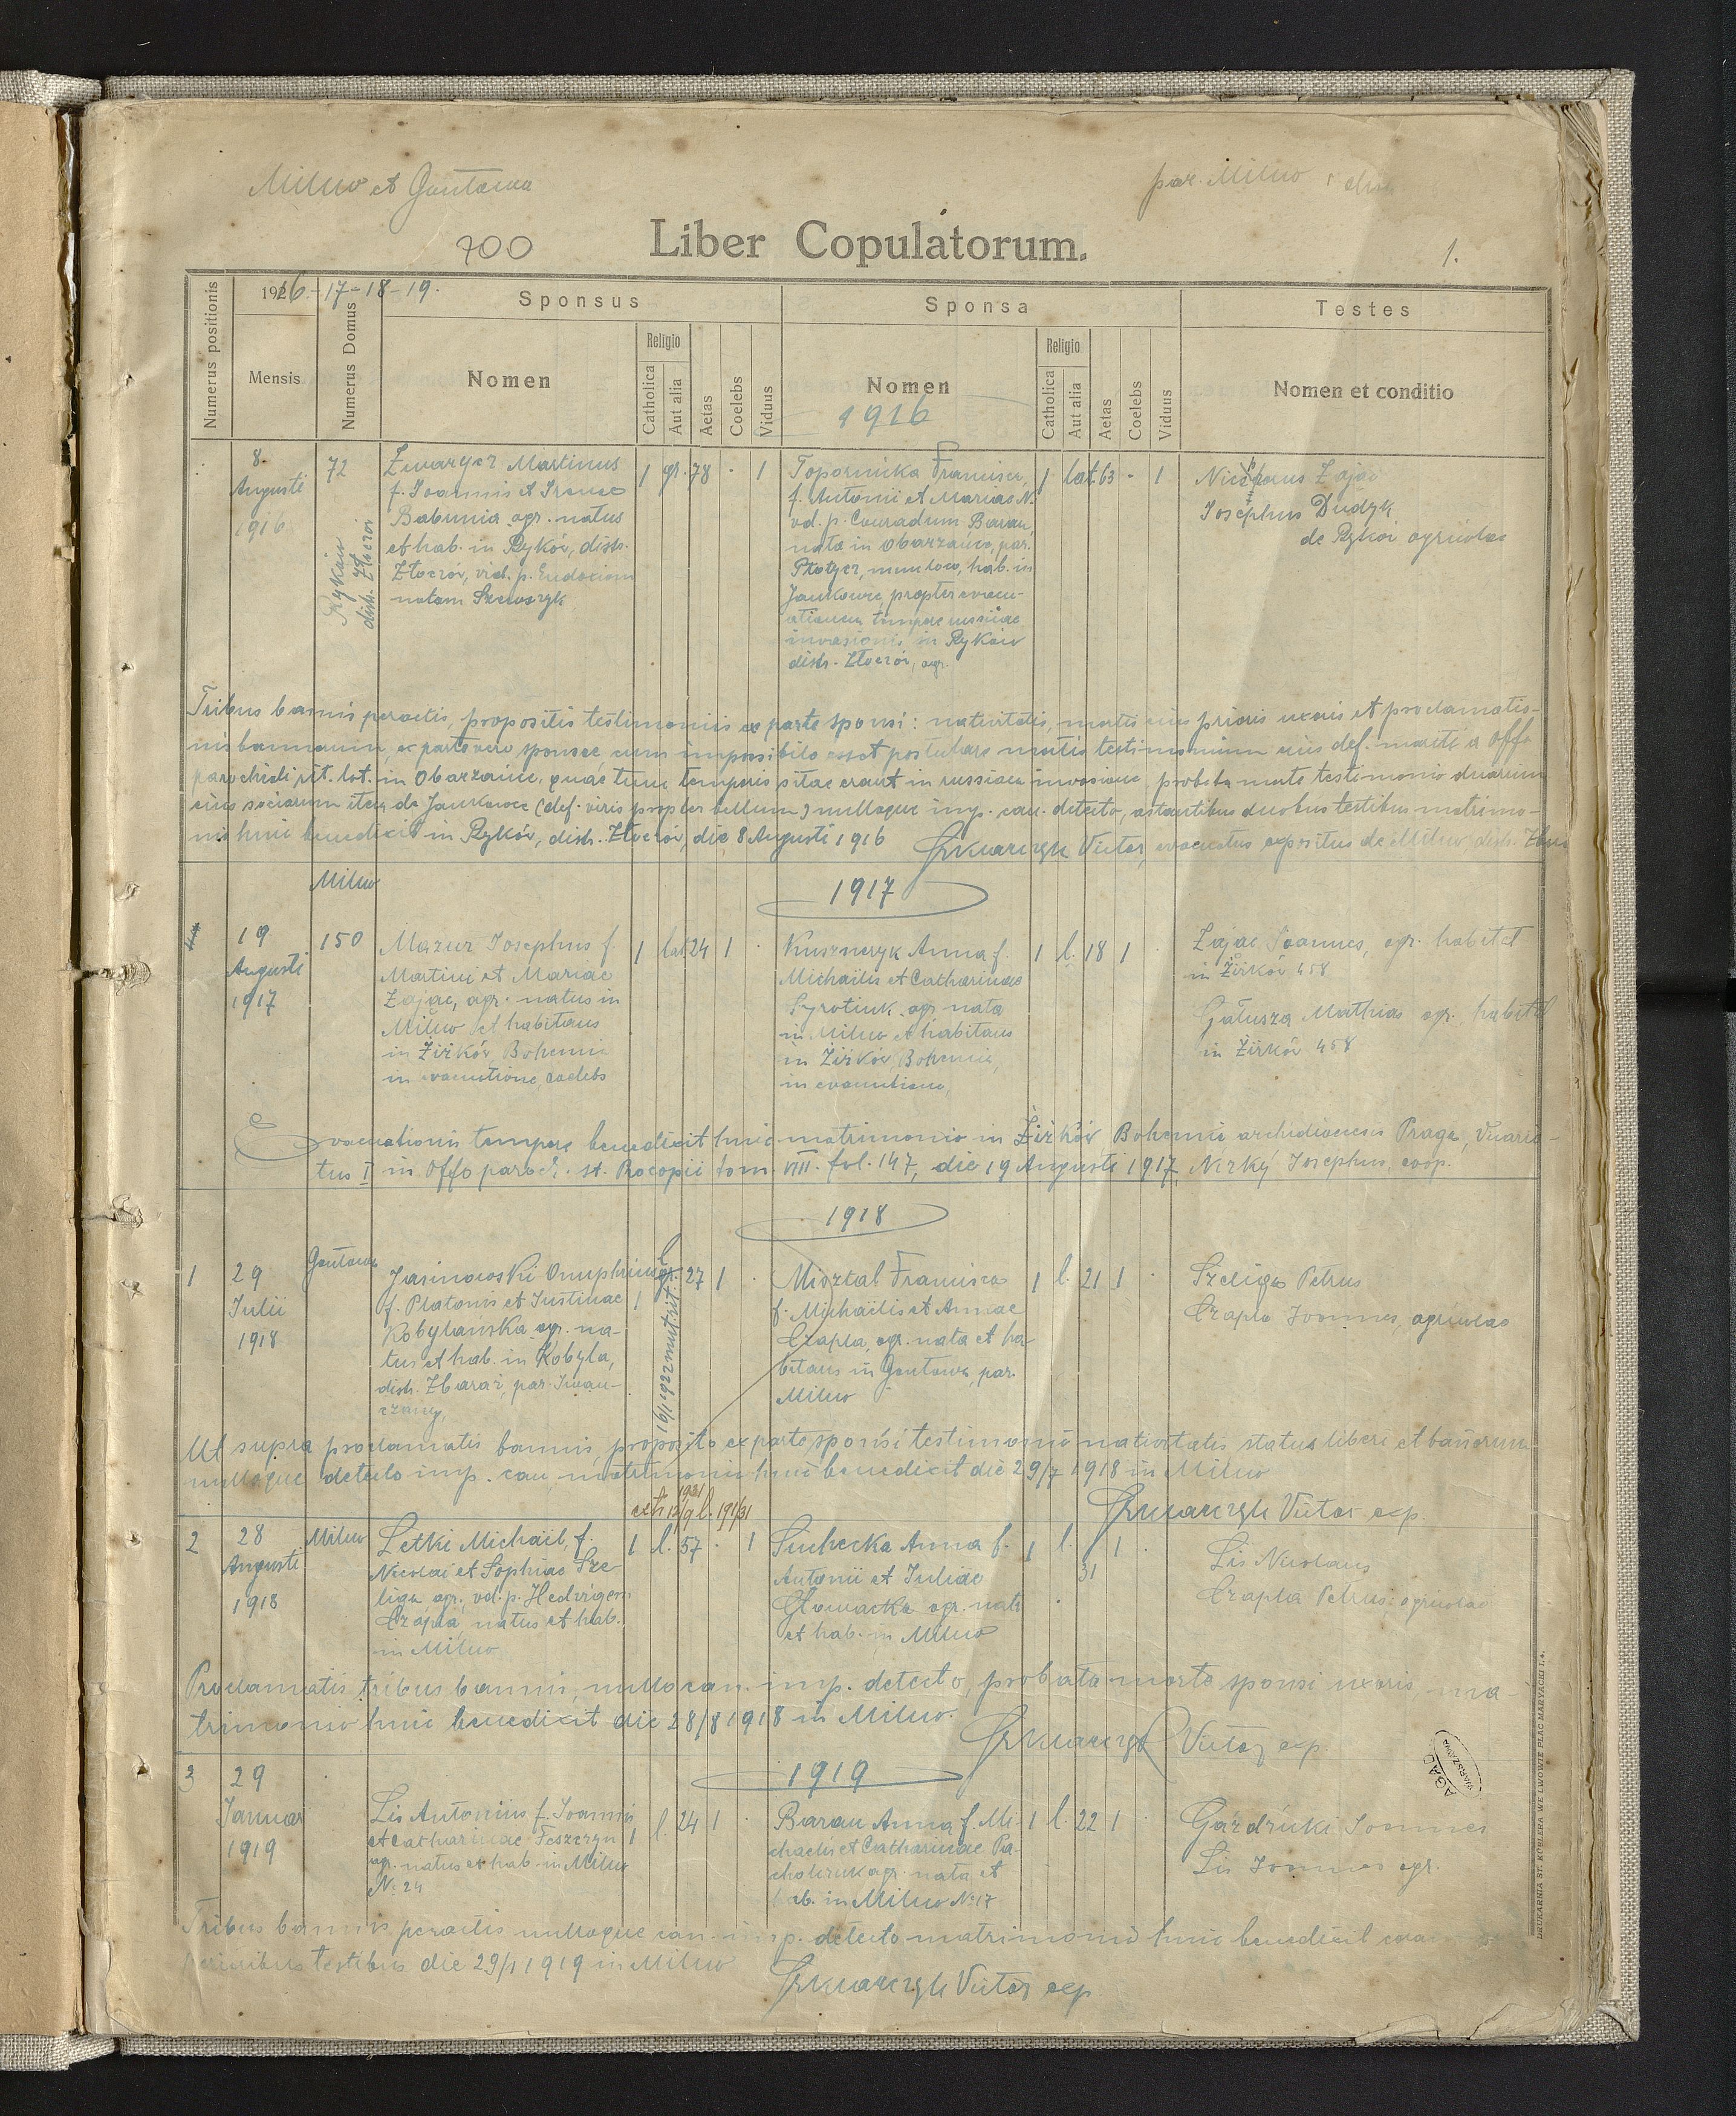 Milno et Gontowa
par. Milno
700
Liber Copulatorum.
1.
Numerus positionis
1916-17-18-19.
Mensis
Numerus Domus
Sponsus
Nomen
Religio
Catholica
Aut alia
Aetas
Coelebs
Viduus
Sponsa
Nomen
1916
Religio
Catholica
Aut alia
Aetas
Coelebs
Viduus
Testes
Nomen et conditio
8.
Augusti
1916
72
Ryków
distr. Złoczów
Martinus
f. Joannis et Irenae
Babunia agr. natus
et hab. in Ryków, distr.
Złoczów, vid. p. Eudociam
natam Szewczyk
1 gr. 78 . 1
Topornicka Francisca,
f. Antonii et Mariae N.
vd. p. Conradum Baran
nata in Obarzańce, par.
hab. in
Jankowce, propter evacu-
ationem tempore russicae
invasionis in Ryków
distr. Złoczów, agr.
1 lat. 63 - 1
Zając
Josephus Dudyk
de Ryków agricolae
Tribus bannis peractis, propositis testimoniis ex parte sponsi: nativitatis, mortis eius prioris uxoris et proclamatio-
nis bannorum, ex parte vero sponsae cum impossibile esset postulare mortis testimonium eius def. mariti a Offo
parochiali rit. lat. in Obarzańce, quae tunc temporis sitae erant in russica invasione, probata morte testimonio duarum
eius sociarum item de Jankowce (def. viris propter bellum) nulloque imp. can. detecto, astantibus duobus testibus matrimo-
nio huic benedixit in Ryków, distr. Złoczów, die 8 Augusti 1916 Victor, evacuatus expositus de Milno, distr.
Milno
1917
19
Augusti
1917
150
Mazur Josephus f.
Martini et Mariae
Zając, agr. natus in
Milno et habitans
in Žižkov, Bohemia
in evacuatione, coelebs
1 lat 24 1 .
Kusznczyk Anna f.
Michaelis et Catharinae
Syrotiuk agr. nata
in Milno et habitans
in Žižkov, Bohemia,
in evacuatione,
1 l. 18 1 .
Zając Joannes, agr. habitat
in Žižkov 458
Gałusza Mathias agr. habitat
in Žižkov 458
Evacuationis tempore benedixit huic matrimonio in Žižkov Bohemia archidioecesis Praga,
tus I in Offo paroch. st. Procopii tom. VIII. fol. 147, die 19 Augusti 1917 Josephus, coop.
1918
1
29
Julii
1918
Gontowa
Jasinowski Onuphrius
f. Platonis et Justinae
Kobylańska agr. na-
tus et hab. in Kobyla,
distr. Zbaraż, par. Iwan-
czany,
1 gr. 27 1 .
mut. rit.
Misztal Francisca
f. Michaëlis et Annae
Czapla, agr. nata et ha-
bitans in Gontowa, par.
Milno
1 l. 21 1 .
Szeliga Petrus
Czapla Joannes, agricolae
Ut supra proclamatis bannis, proposito ex parte sponsi testimonio nativitatis, status liberi et bannorum
nulloque detecto imp. can. matrimonio huic benedixit die 29/7 1918 in Milno
Victor exp.
1931
2
28
Augusti
1918
Milno
Letki Michaël, f.
Nicolai et Sophiae Sze-
liga agr., vd. p. Hedvigem
Czapla, natus et hab.
in Milno
1 l. 57 . 1
Suchecka Anna f.
Antonii et Juliae
Głowacka agr. nata
et hab. in Milno
1 l. 31 1 .
Lis Nicolaus
Czapla Petrus: agricolae
Proclamatis tribus bannis, nullo can. imp. detecto, probata morte sponsi uxoris, ma-
trimonio huic benedixit die 28/8 1918 in Milno.
Victor exp
1919
3
29
Januar
1919
Lis Antonius f. Joannis
et Catharinae
agr. natus et hab. in Milno
No 24
1 l. 24 1 .
Baran Anna f. Mi-
chaelis et Catharinae Pa-
choluk agr. nata et
hab. in Milno No 17
1 l. 22 1 .
Joannes
Lis Joannes agr.
Tribus bannis peractis nulloque can. imp. detecto matrimonio huic benedixit coram
testibus die 29/1 1919 in Milno
Victor exp
AGAD
WARSZAWA
DRUKARNIA ST. KOBLERA WE LWOWIE PLAC MARYACKI L.4.